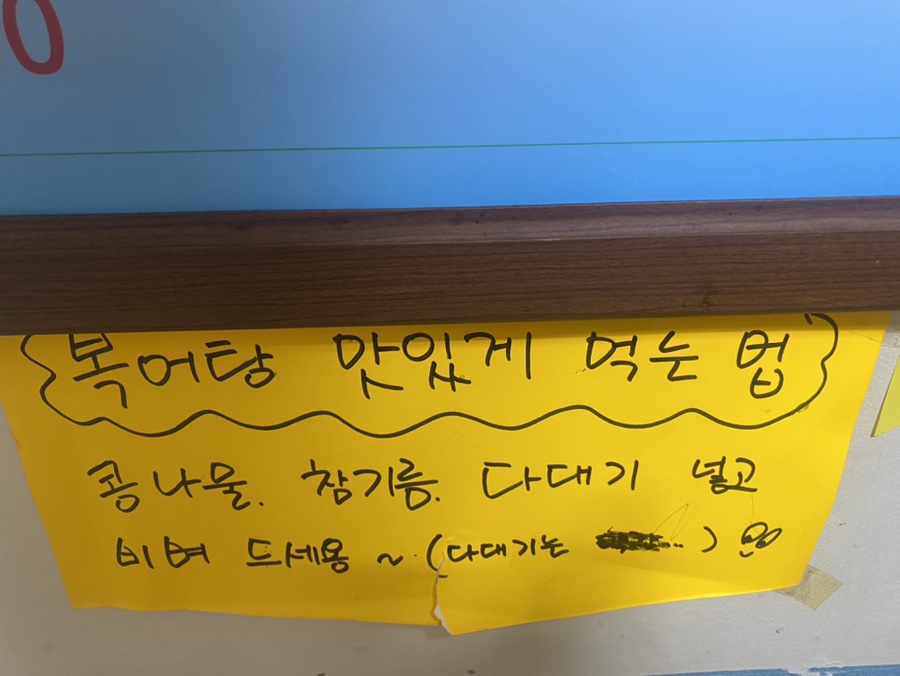 0
복어탕 맛있게 먹는 법
콩나물. 참기름. 다대기 넣고
비벼 드세용 ~ (다대기는 ...)